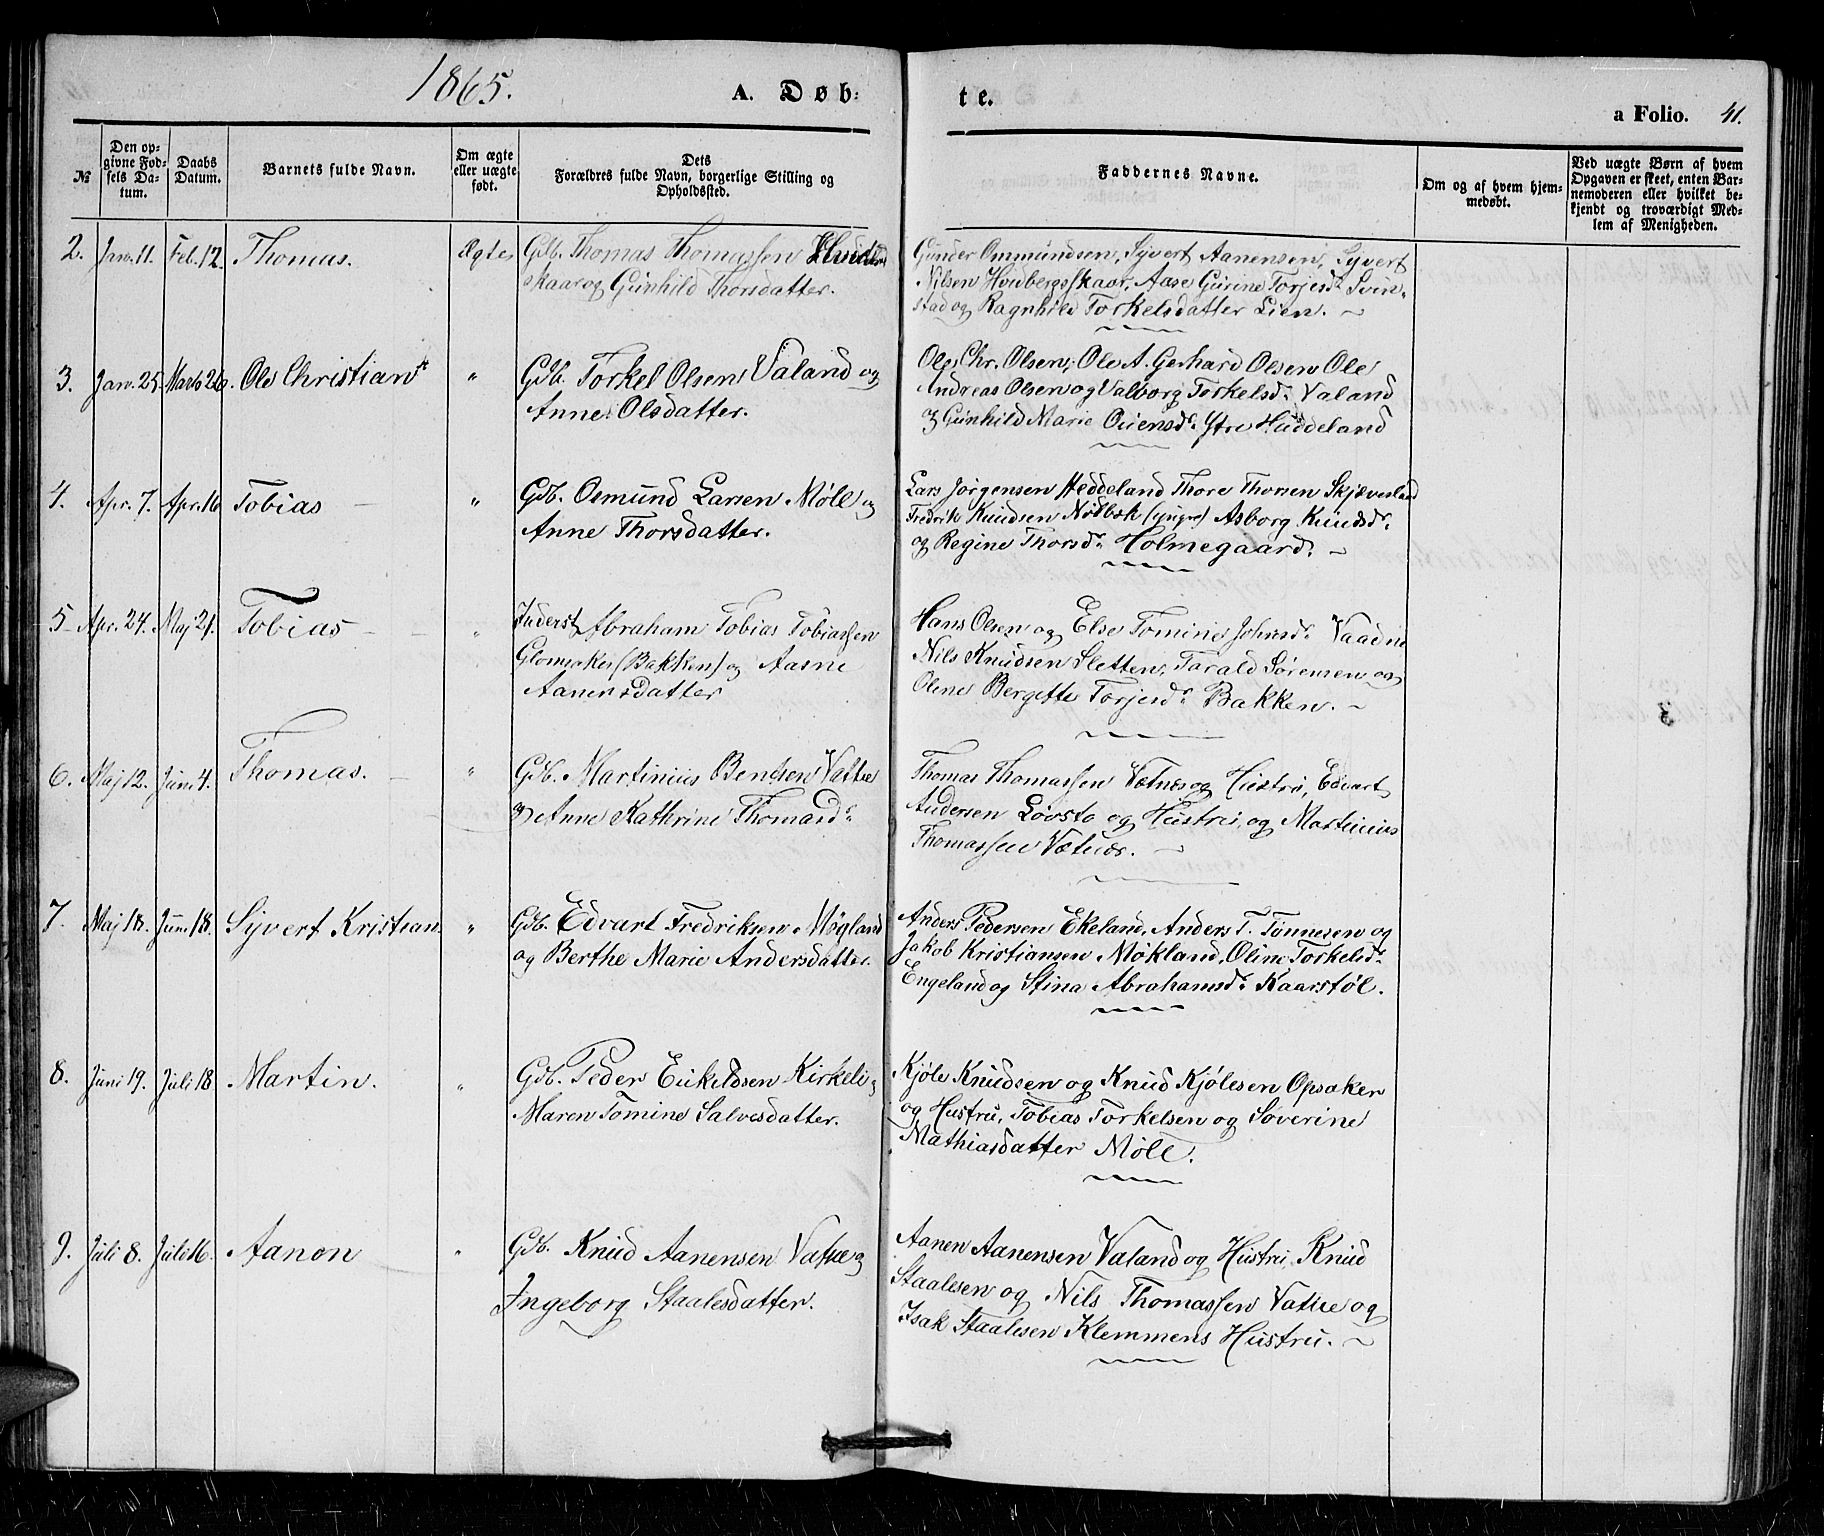 1865.
A. Døb-
te.
a Folio. 41.
№
Den op-
givne Fød-
sels Da-
tum.
Daabs
Datum.
Barnets fulde Navn.
Om ægte
eller uægte
født.
Dets
Forældres fulde Navn, borgerlige Stilling og
Opholdssted.
Faddernes Navne.
Om og af hvem hjem-
medøbt.
Ved uægte Børn af hvem
Opgaven er skeet, enten Bar-
nemoderen eller hvilket be-
kjendt og troværdigt Med-
lem af Menigheden.
2. Jan. 11. Feb. 12. Thomas. Ægte
Gdb. Thomas Thomassen
skaar og Gunhild Thorsdatter.
Gunder Ommundsen, Syvert Aanensen, Syvert
Nilsen Hvidbergsskaar, Aase Gurine Torjesdr. Svin-
stad og Ragnhild Torkelsdatter Lien.
3. Jan. 25. Marts 26. Ole Christian "
Gdb. Torkel Olsen Valand og
Anne Olsdatter.
Ole Chr. Olsen, Ole A. Gerhard Olsen Ole
Andreas Olsen og Valborg Torkelsd. Valand
og Gunhild Marie Ytre Huddeland
4. Apr. 7. Apr. 16 Tobias "
Gdb. Osmund Larsen Møll og
Anne Thorsdatter.
Lars Jørgensen Heddeland Thore Thorsen Skjævesland
Fredrik Knudsen Nødbæk (yngre) Asborg Knudsdr.
og Regine Thorsdr. Holmegaard.
5 Apr. 24. Maj 21. Tobias "
Inderst Abraham Tobias Tobiassen
Glomsaker (Bakken) og Aasne
Aanensdatter
Hans Olsen og Else Tomine Johnsdr.
Nils Knudsen Sletten, Tarald Sørensen og
Oline Bergette Torjesdr. Bakken.
6. Maj 12. Juni 4. Thomas. "
Gdb. Martinius Bentsen Vatne
og Anne Kathrine Thomasdr.
Thomas Thomassen Vatnes og Hustru, Edvart
Andersen Løvsto og Hustru, og Martinius
Thomassen Vatnes.
7. Maj 18. Juni 18. Syvert Kristian. "
Gdb. Edvart Fredriksen Møgland
og Berthe Marie Andersdatter.
Anders Pedersen Ekeland, Anders T. Tønnesen og
Jakob Kristiansen Møkland, Oline Torkelsdr.
Engeland og Stina Abrahamsdr. Kaarstøl.
8. Juni 19. Juli 18 Martin. "
Gdb. Peder Eskildsen Kirkeli og
Maren Tomine Salvesdatter.
Kjøle Knudsen og Knud Kjølesen Opsaker
og Hustru, Tobias Torkelsen og Søverine
Mathiasdatter Møll.
9. Juli 8. Juli 16. Aanon "
Gdb. Knud Aanensen Vatne og
Ingeborg Staalesdatter.
Aanen Aanensen Valand og Hustru, Knud
Staalesen og Nils Thomassen Vatne og
Isak Staalesen Klemmens Hustru.